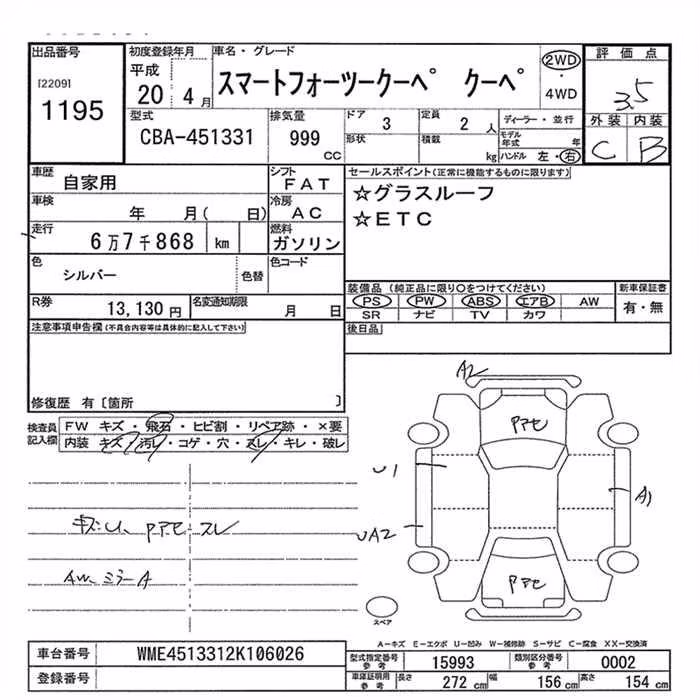 出品番号 初度登録年月 車名・グレード 評価点
[2209] 平成 スマートフォーツークーペ クーペ 2WD
1195 20 4月 ・ 4WD 3.5
型式 排気量 ドア 3 定員 2人 ディーラー・並行 外装 内装
CBA-451331 999 CC 形状 積載 kg モデル年式 年 C B
ハンドル 左・右
車歴 自家用 シフト FAT セールスポイント(正常に機能するものに限ります)
車検 年 月( 日) 冷房 AC ☆グラスルーフ
走行 6万7千868 km 燃料 ガソリン ☆ETC
色 シルバー 色替 色コード
装備品(純正品に限り○をつけてください) 新車保証書
R券 13,130円 名変通知期限 月 日 PS PW ABS エアB AW 有・無
SR ナビ TV カワ
注意事項申告欄(不具合内容等は具体的に記入して下さい) 後日品
修復歴 有〔箇所 〕
検査員記入欄 FW キズ・飛石・ヒビ割・リペア跡・×要
内装 キズ・汚レ・コゲ・穴・スレ・キレ・破レ
A2
PアセU1
A1
UA2
Pアセ
キズU、Pアセ スレ
AW、ミラーA
スペア
A-キズ E-エクボ U-凹み W-補修跡 S-サビ C-腐食 XX-交換済
車台番号 WME4513312K106026 型式指定番号参考 15993 類別区分番号参考 0002
登録番号 車庫証明用参考 長さ 272cm 幅 156cm 高さ 154cm